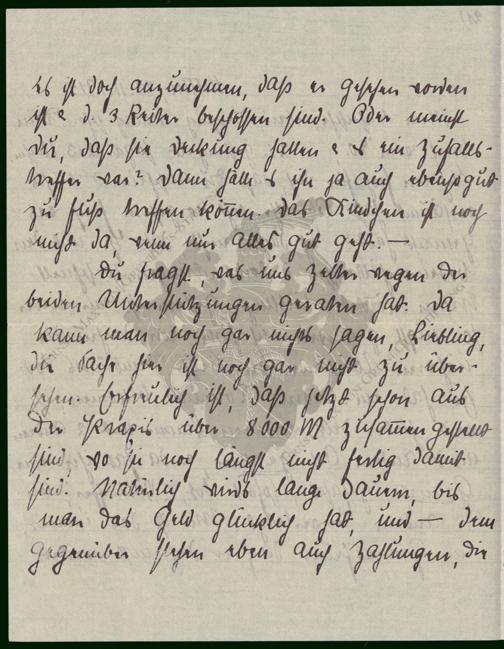 Es ist doch anzunehmen, daß er gesehen worden
ist & d. 3 Reiter beschossen sind. Oder meinst
Du, daß sie Deckung hatten & es ein Zufalls-
treffer war? Dann hätte es ihn ja auch ebensogut
zu Fuß treffen können. Das Kindchen ist noch
nicht da, wenn nur alles gut geht. —
Du fragst, was uns Zelter wegen der
beiden Unterstützungen geraten hat. Da
kann man noch gar nichts sagen, Liebling,
die Sache hier ist noch gar nicht zu über-
sehen. Erfreulich ist, daß jetzt schon aus
der Praxis über 8000 M zusammengestellt
sind, wo sie noch längst nicht fertig damit
sind. Natürlich wirds lange dauern, bis
man das Geld glücklich hat, und — dem
gegenüber stehen eben auch Zahlungen, die